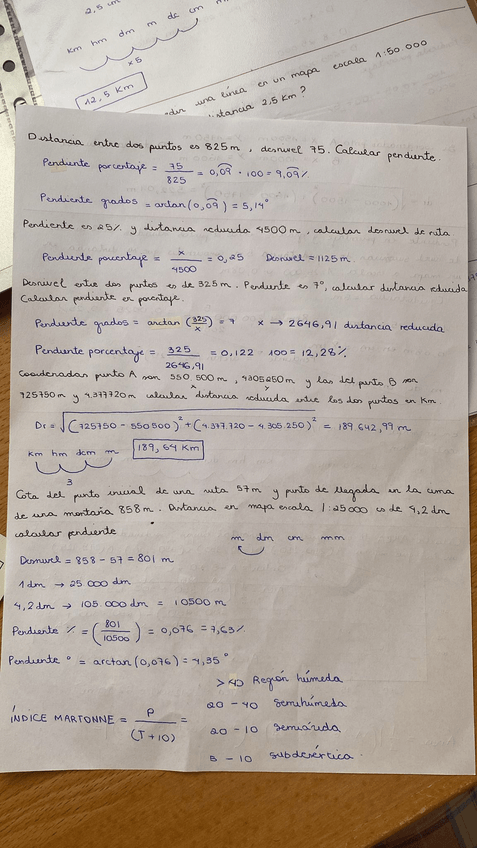 2,5 cm
km hm dm m dc cm
x5
12,5 Km
una línea en un mapa escala 1:50.000
distancia 2,5 Km?
Distancia entre dos puntos es 825 m, desnivel 75. Calcular pendiente.
Pendiente porcentaje = 75/825 = 0,09 · 100 = 9,09%
Pendiente grados = artan (0,09) = 5,14°
Pendiente es 25% y distancia reducida 4500 m, calcular desnivel de ruta
Pendiente porcentaje = x/4500 = 0,25 Desnivel = 1125 m.
Desnivel entre dos puntos es de 325 m. Pendiente es 7°, calcular distancia reducida
Calcular pendiente en porcentaje.
Pendiente grados = arctan (325/x) = 7 x → 2646,91 distancia reducida
Pendiente porcentaje = 325/2646,91 = 0,122 · 100 = 12,28%
Coordenadas punto A son 550.500 m, 4305250 m y las del punto B son
x y
725750 m y 4.377720 m calcular distancia reducida entre los dos puntos en Km.
Dr = √(725750 - 550500)² + (4.377.720 - 4.305.250)² = 189.642,99 m
km hm dcm m 189,64 Km
3
Cota del punto inicial de una ruta 57 m y punto de llegada en la cima
de una montaña 858 m. Distancia en mapa escala 1:25000 es de 4,2 dm
calcular pendiente
m dm cm mm
Desnivel = 858 - 57 = 801 m
1 dm → 25 000 dm
4,2 dm → 105.000 dm = 10500 m
Pendiente % = (801/10500) = 0,076 = 7,63%
Pendiente ° = arctan (0,076) = 4,35°
> 40 Región húmeda
20 - 40 Semihúmeda
ÍNDICE MARTONNE = P/(T+10) =
20 - 10 Semiárida
5 - 10 subdesértica